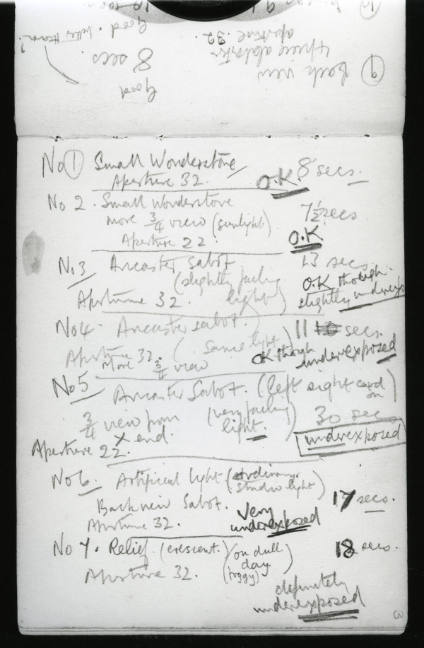 ⑨ Back view
aperture 32.
8 secs
Good
No ① Small Wonderstone
Aperture 32. O.K 8 secs.
No 2. Small Wonderstone
more 3/4 view (sunlight) 7½ secs
Aperture 22. O.K
No 3 Ancaster Sabot 13 secs
(slightly facing light) O.K though
Aperture 32. slightly underexp
No 4. Ancaster sabot. 11 secs.
Aperture 32. (same light) OK though
more 3/4 view underexposed
No 5 Ancaster Sabot. (left eight card on)
3/4 view from (very facing light. 30 sec
X end. underexposed
Aperture 22.
No 6. Artificial light (ordinary studio light)
Back view Sabot. 17 secs.
Aperture 32. Very underexposed
No 7. Relief (crescent) (on dull day (foggy) 18 secs.
Aperture 32.
definitely
underexposed
3